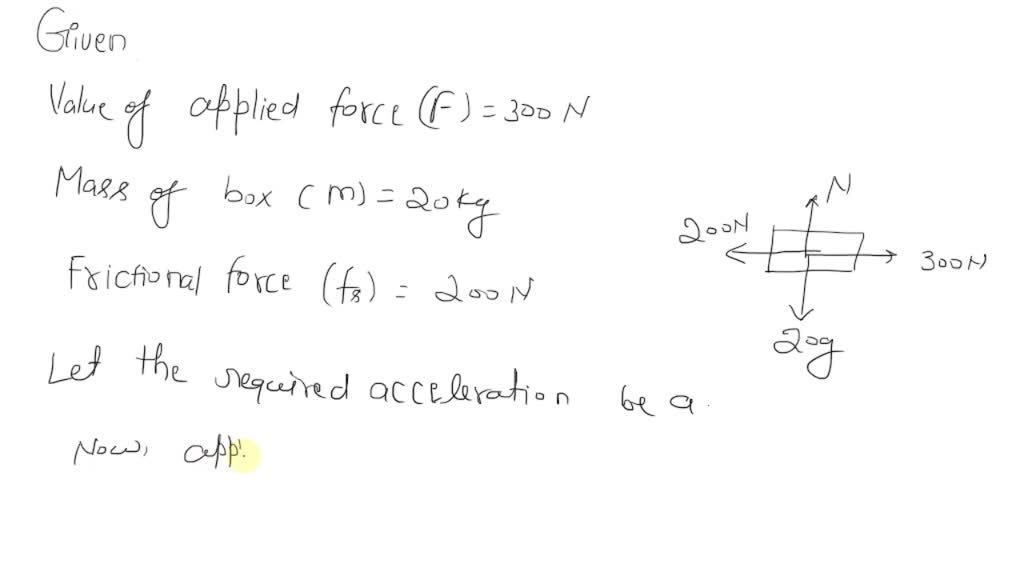 Given
Value of applied force (F) = 300 N
Mass of box (m) = 20 kg
Frictional force (fs) = 200 N
Let the required acceleration be a.
Now, app
N
200N
300N
20g